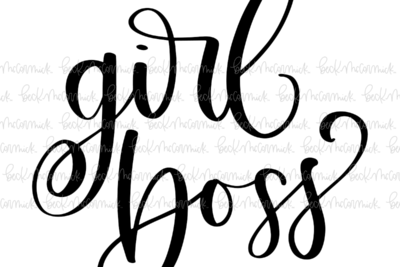 girl
boss